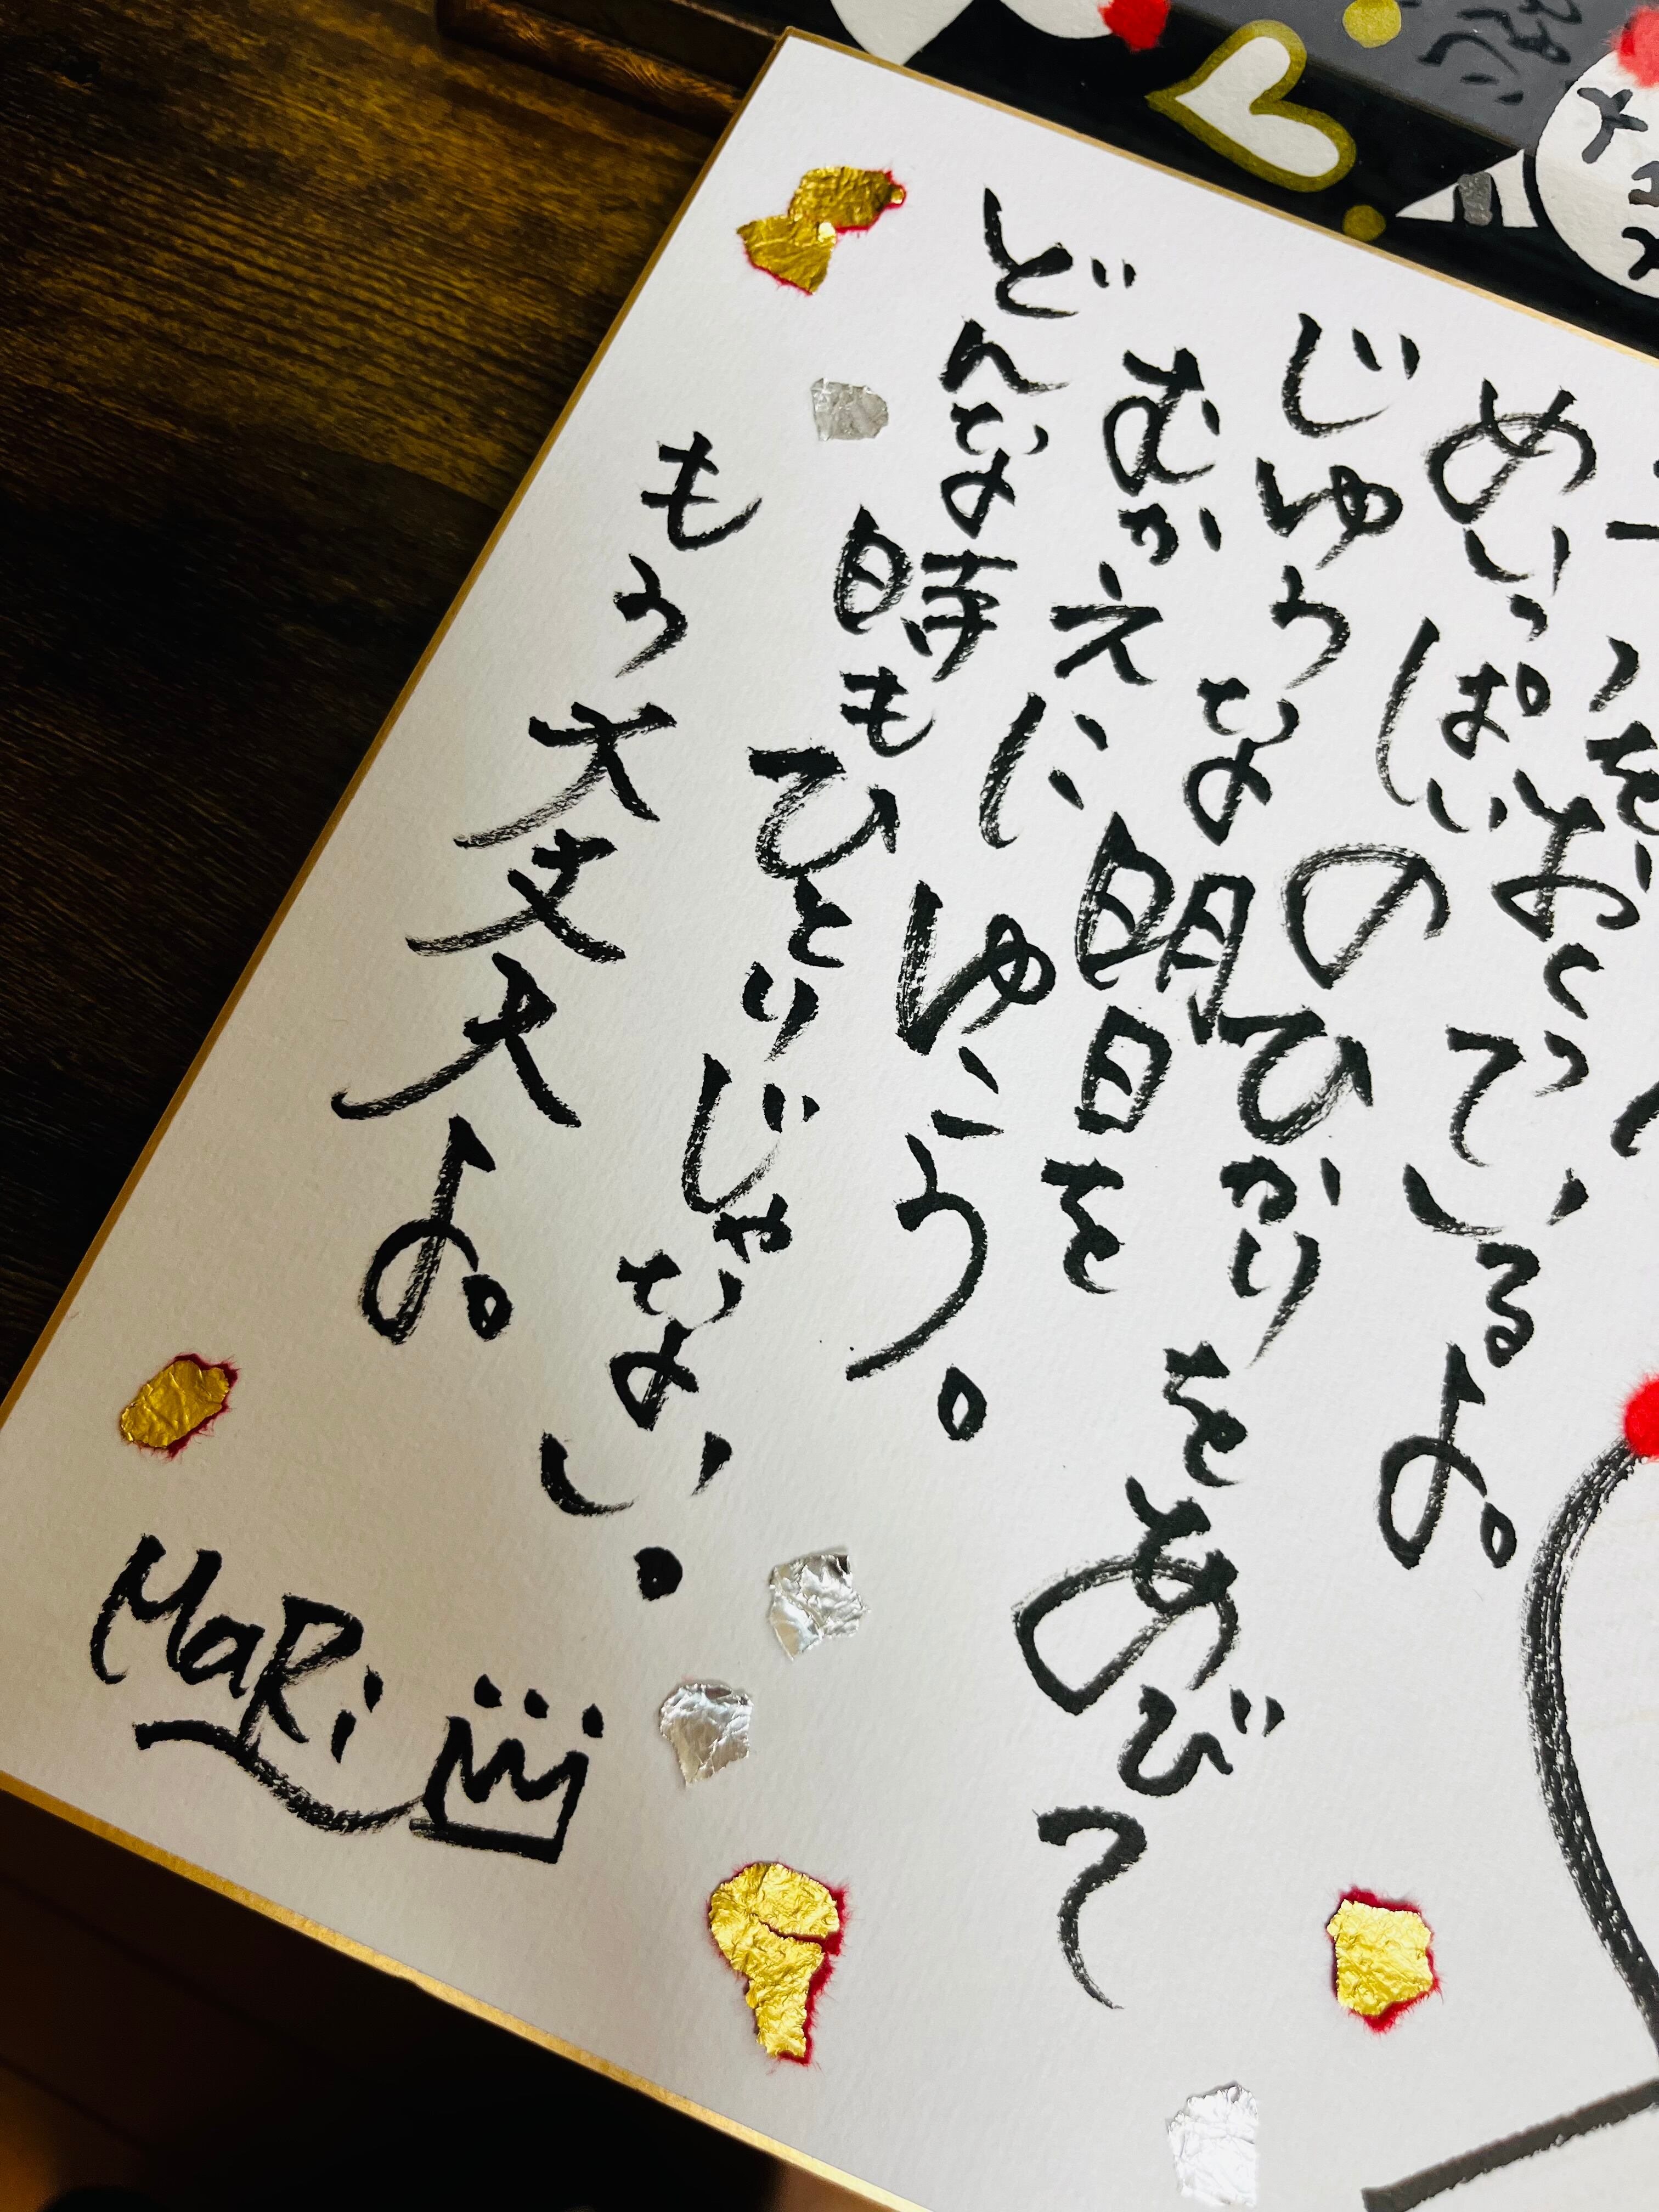 をおくっているよ。
めいっぱいのひかりをあびて
じゆうな明日を
むかえにゆこう。
どんな時もひとりじゃない。
もう大丈夫よ。
MaRi